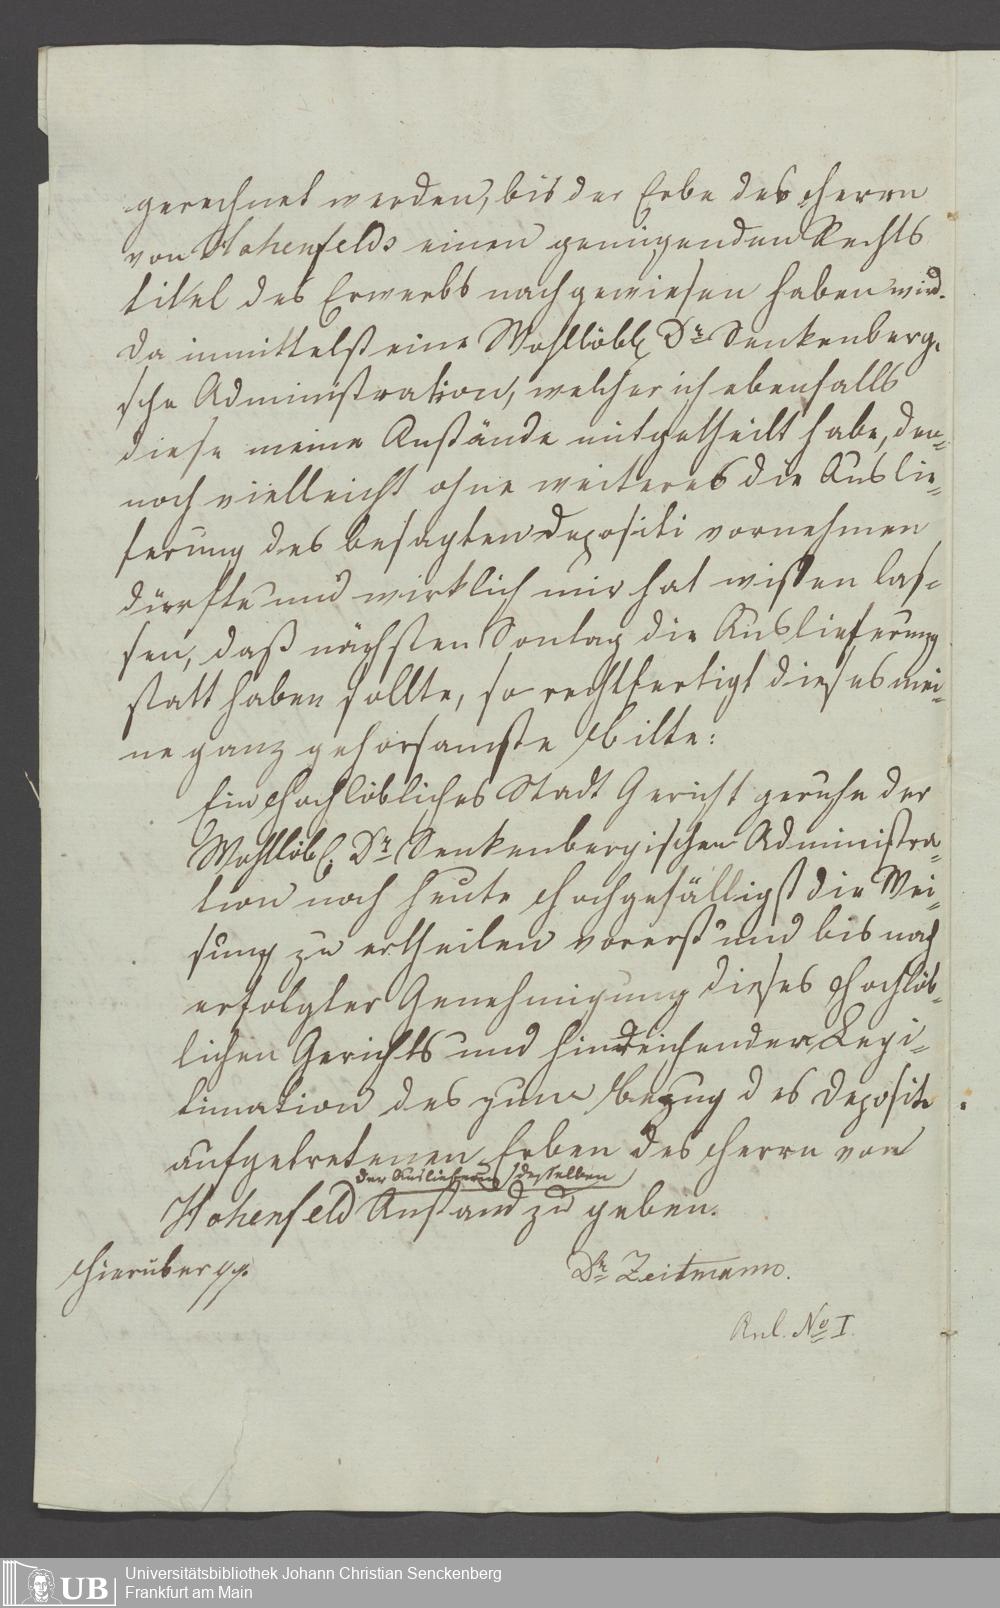 gerechnet werden, bis der Erbe des Herrn
von Hohenfelds einen genügenden Rechts
titel des Erwerbs nachgewiesen haben wird.
Da inmittelst eine Wohllöbl. Dr Senkenberg.
sche Administration, welcher ich ebenfalls
diese meine Anstände mitgetheilt habe, den=
noch vielleicht ohne weiteres die Auslie=
ferung des besagten Depositi vornehmen
dürfte und wirklich mir hat wißen las=
sen, daß nächsten Sontag die Auslieferung
statt haben sollte, so rechtfertigt dieses mei=
ne ganz gehorsamste Bitte:
Ein Hochlöbliches Stadt Gericht geruhe der
Wohllöbl. Dr Senkenbergischen Administra=
tion noch heute Hochgefälligst die Wei=
sung zu ertheilen vorerst und bis nach
erfolgter Genehmigung dieses Hochlöb=
lichen Gerichts und hinreichender Legi=
timation des zum Bezug des Depositi
aufgetretenen Erben des Herrn von
der Auslieferung desselben
Hohenfeld Anstand zu geben.
Hierüber pp.
Dr Zeitmann.
Anl. No I.
Universitätsbibliothek Johann Christian Senckenberg
Frankfurt am Main
UB